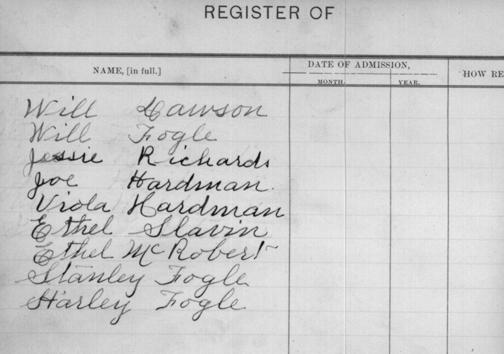 REGISTER OF
NAME, [in full.]
DATE OF ADMISSION,
MONTH.
YEAR.
HOW RE
Will Lawson
Will Fogle
Jessie Richards
Joe Hardman.
Viola Hardman
Ethel Slavin
Ethel McRobert
Stanley Fogle
Harley Fogle